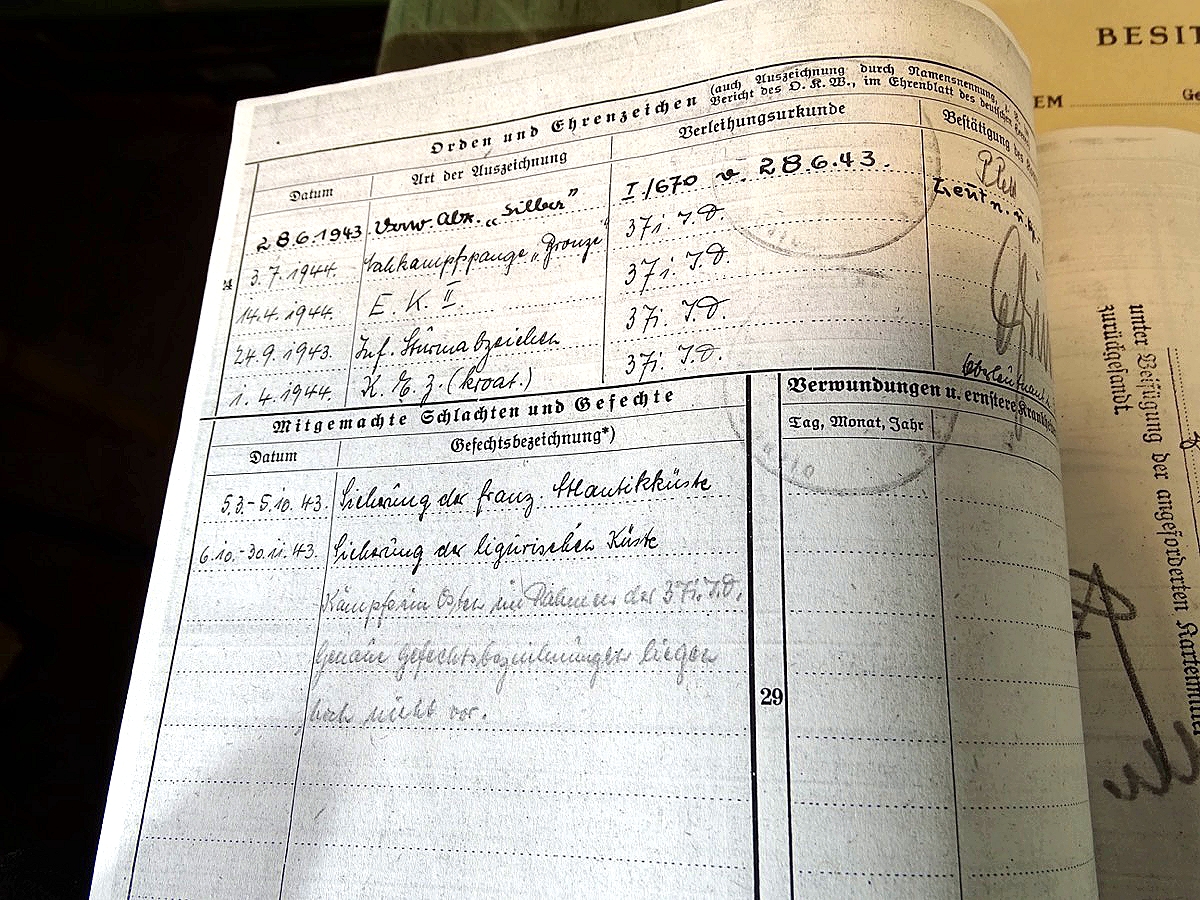 BESIT
EM
Ge
Orden und Ehrenzeichen (auch Auszeichnung durch Namensnennung,
Bericht des O. K. W., im Ehrenblatt des deutschen
Datum Art der Auszeichnung Verleihungsurkunde Bestätigung des
28.6.1943. Verw. Abz. „Silber“ I./670 v. 28.6.43. Leutn. u.
3.7.1944. Nahkampfspange „Bronze“ 371. I.D.
14.4.1944. E. K. II. 371. I.D.
24.9.1943. Inf. Sturmabzeichen 371. I.D.
1.4.1944. (kroat.) 371. I.D. Oberleutnant
Mitgemachte Schlachten und Gefechte
Datum Gefechtsbezeichnung*)
5.3.-5.10.43. Sicherung der franz. Atlantikküste
6.10.-30.11.43. Sicherung der ligurischen Küste
Kämpfe im Osten im Rahmen der 371. I.D.
Genaue Gefechtsbezeichnungen liegen
noch nicht vor.
Verwundungen u. ernstere
Tag, Monat, Jahr
29
unter Beifügung der angeforderten
zurückgesandt.